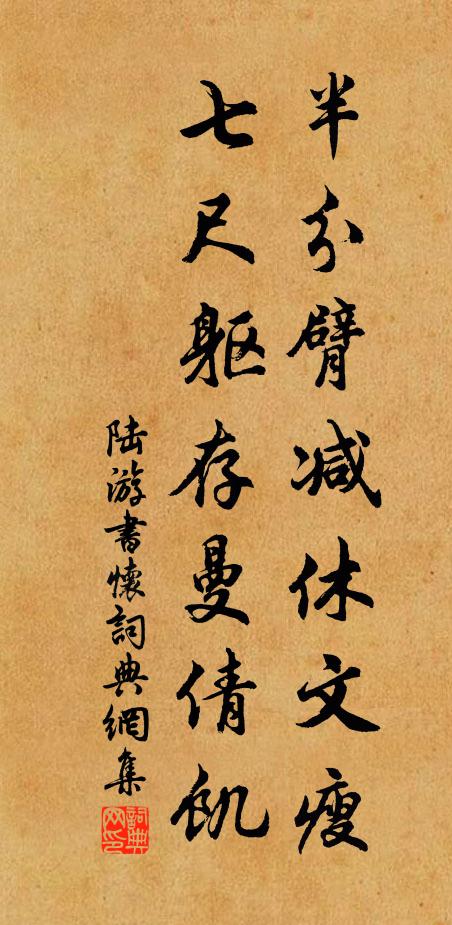 半分臂减休文瘦
七尺躯存曼倩飢
陆游書懷詞典網集
詞典网印